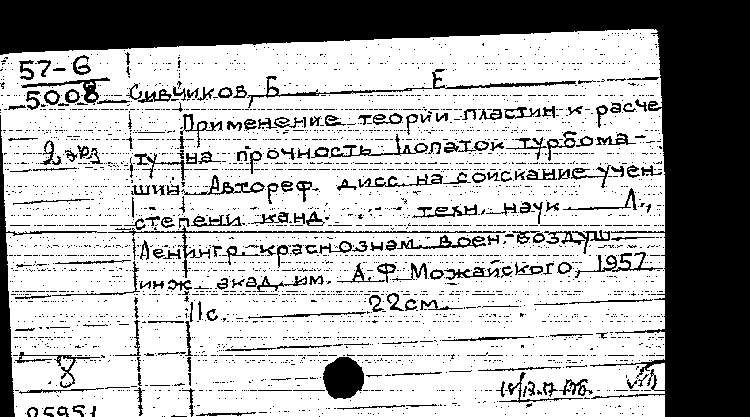 57-6
5008
Сивчиков, Б Е
Применение теории пластин к расче
2 экз ту на прочность лопаток турбома-
шин. Автореф. дисс. на соискание учен.
степени канд. техн. наук Л.,
Ленингр. краснознам. воен-воздуш.
инж. акад. им. А.Ф. Можайского, 1957.
11с. 22см.
8